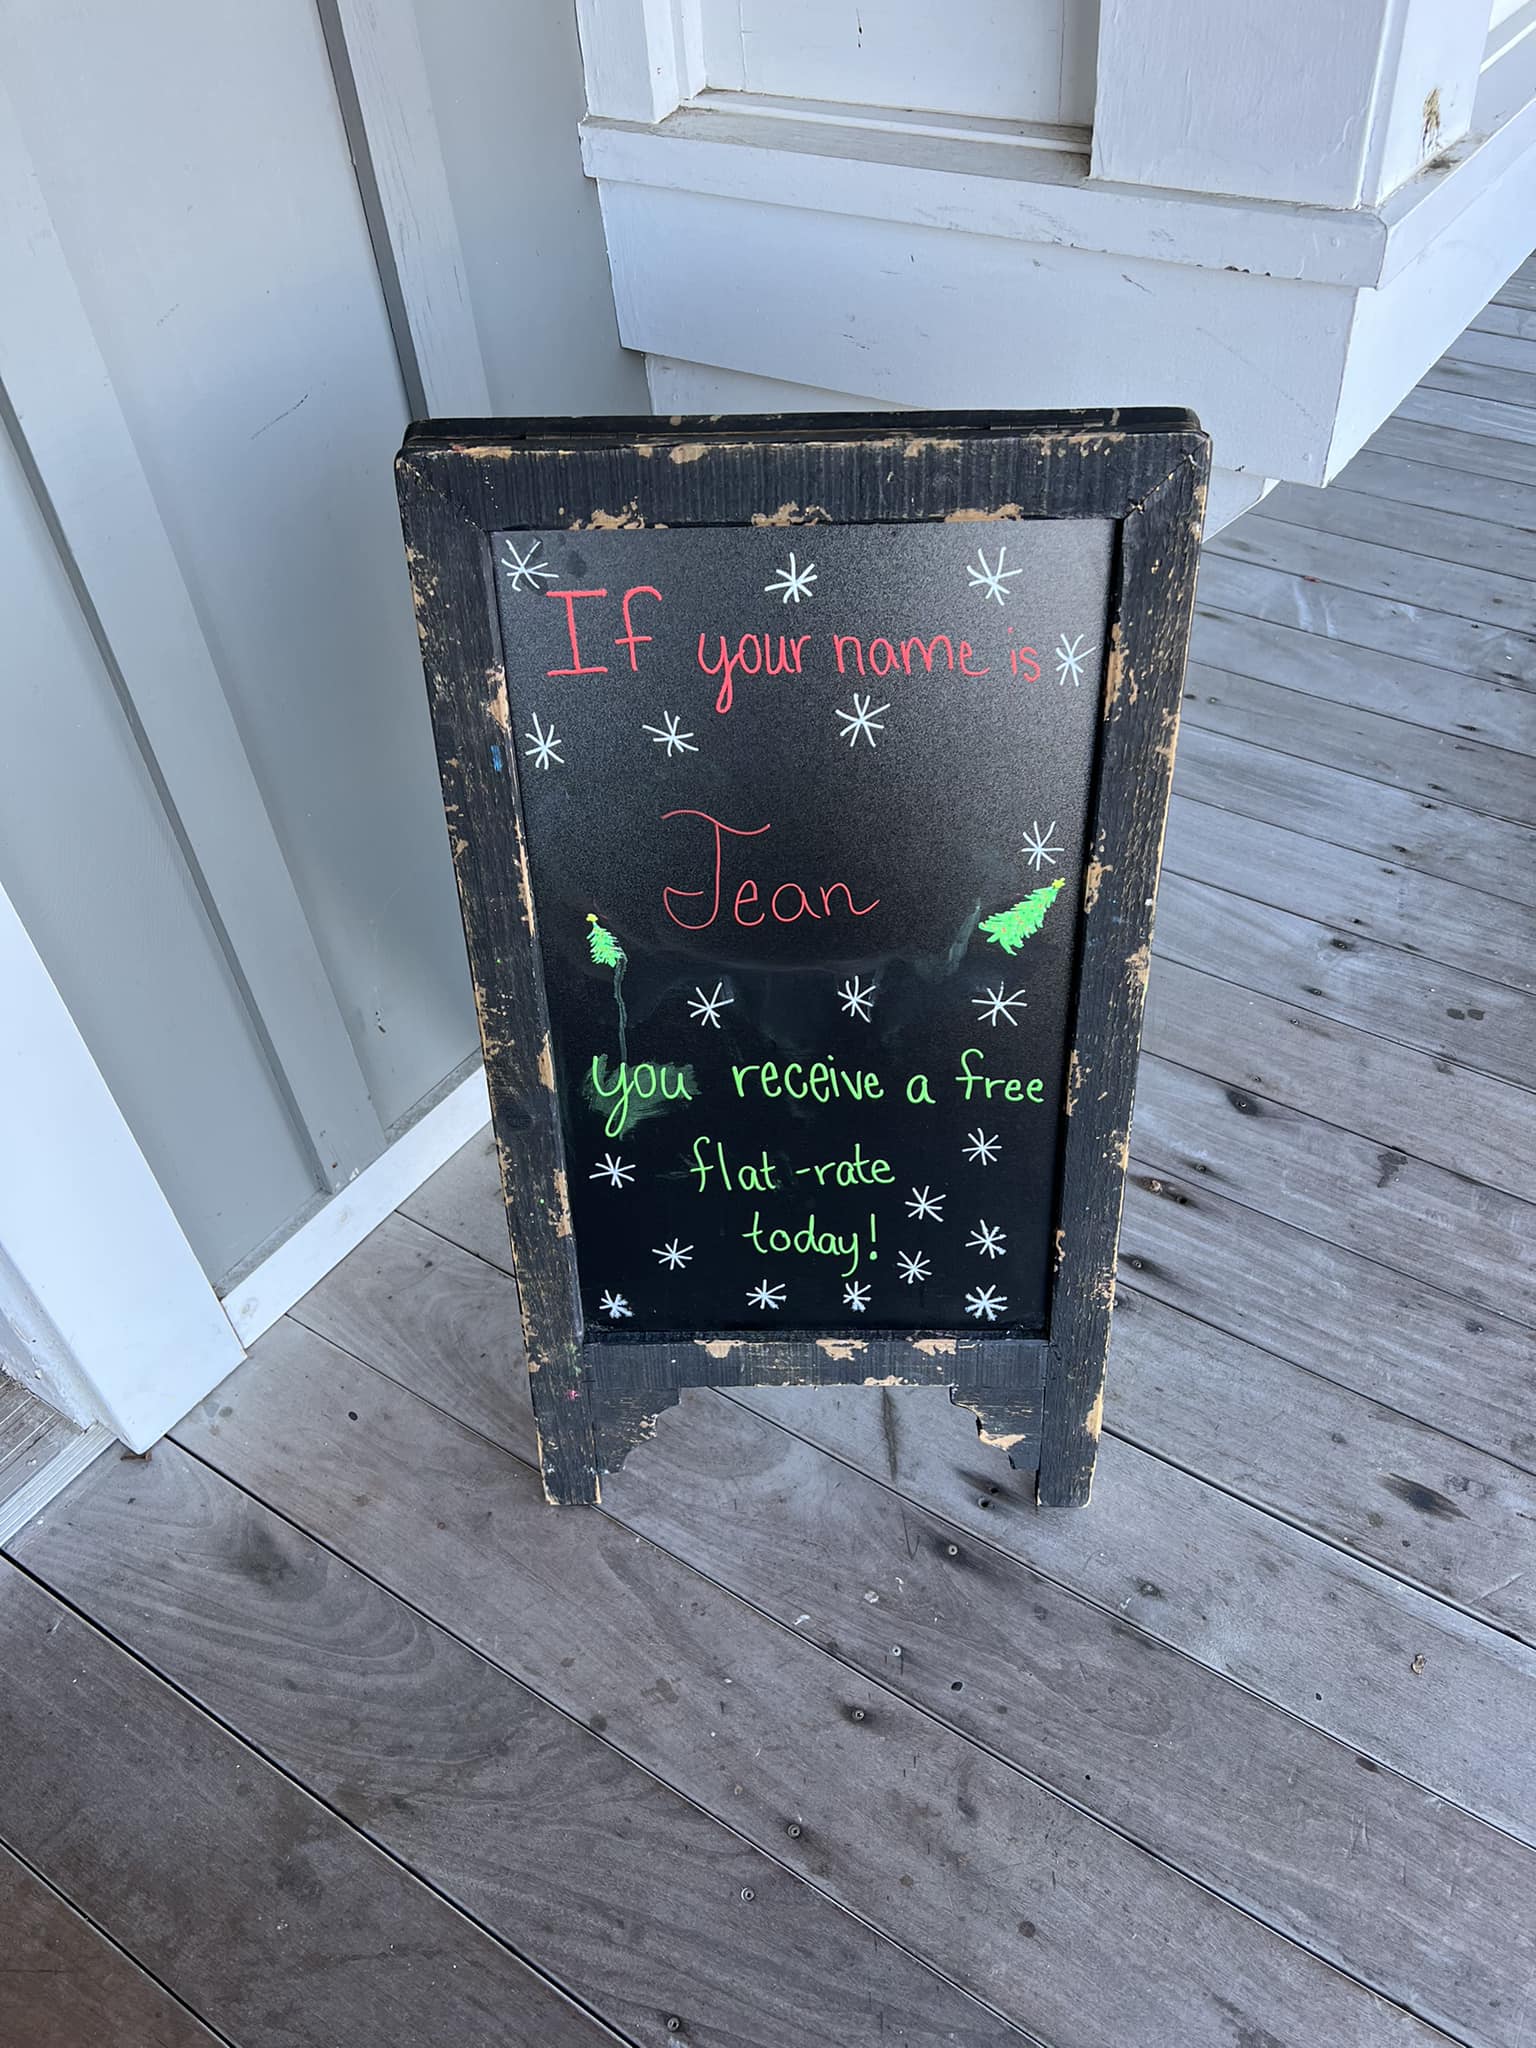 If your name is
Jean
you receive a free
flat-rate
today!